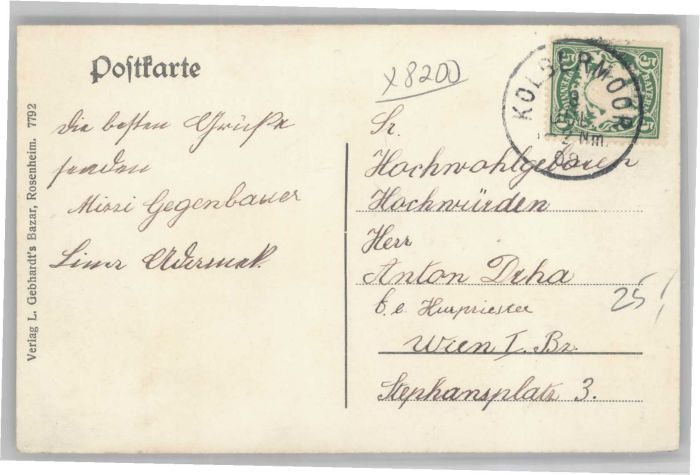 Postkarte
x8200
die besten Grüße
senden
Mizzi Gegenbauer
Verlag L. Gebhardt's Bazar, Rosenheim. 7792
5 BAYERN 5
PFENNIG
KOLBERMOOR
Nm.
08
Sr.
Hochwohlgeboren
Hochwürden
Herr
Anton
Wien I. Bz.
Stephansplatz 3.
25